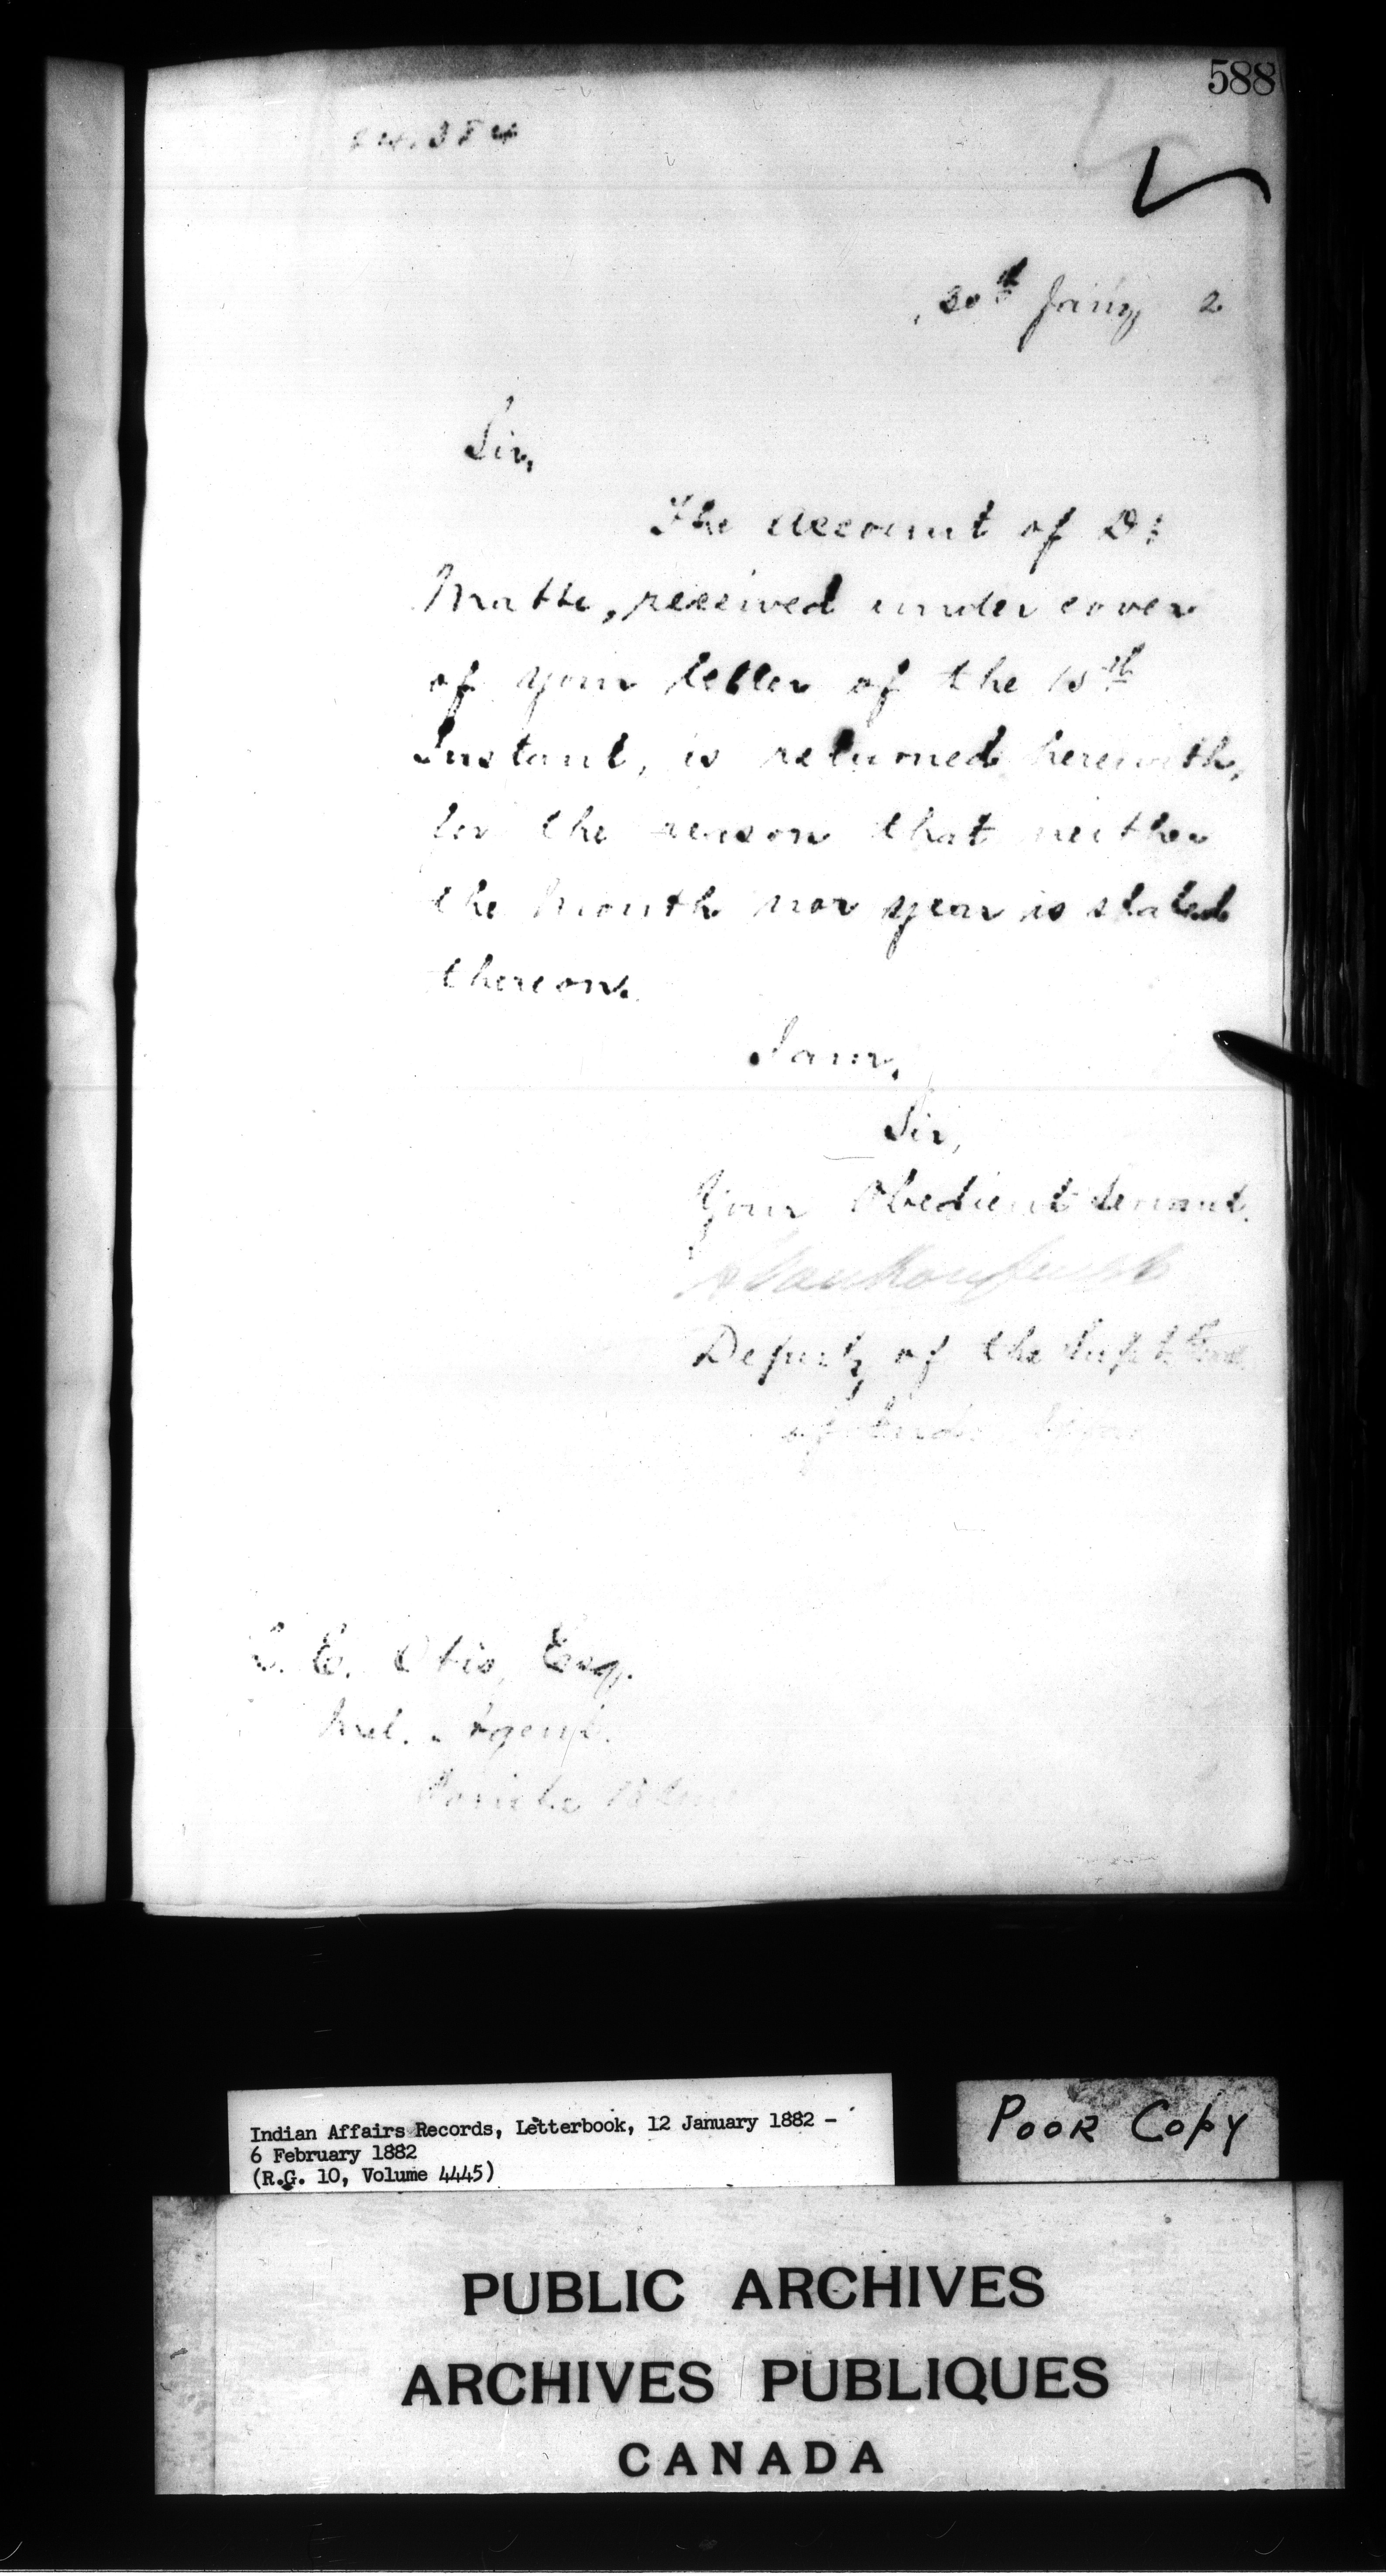 588
30th Jany 2
Sir,
The account of Dr
Matte, received under cover
of your letter of the 15th
Instant, is returned herewith,
for the reason that neither
the month nor year is stated
thereon.
I am,
Sir,
Your Obedient Servant.
Deputy of the Supt. Genl.
of Ind.
L. E. Otis, Esq.
Ind. Agent.
Pointe Bleue
Indian Affairs Records, Letterbook, 12 January 1882 -
6 February 1882
(R.G. 10, Volume 4445)
POOR COPY
PUBLIC ARCHIVES
ARCHIVES PUBLIQUES
CANADA